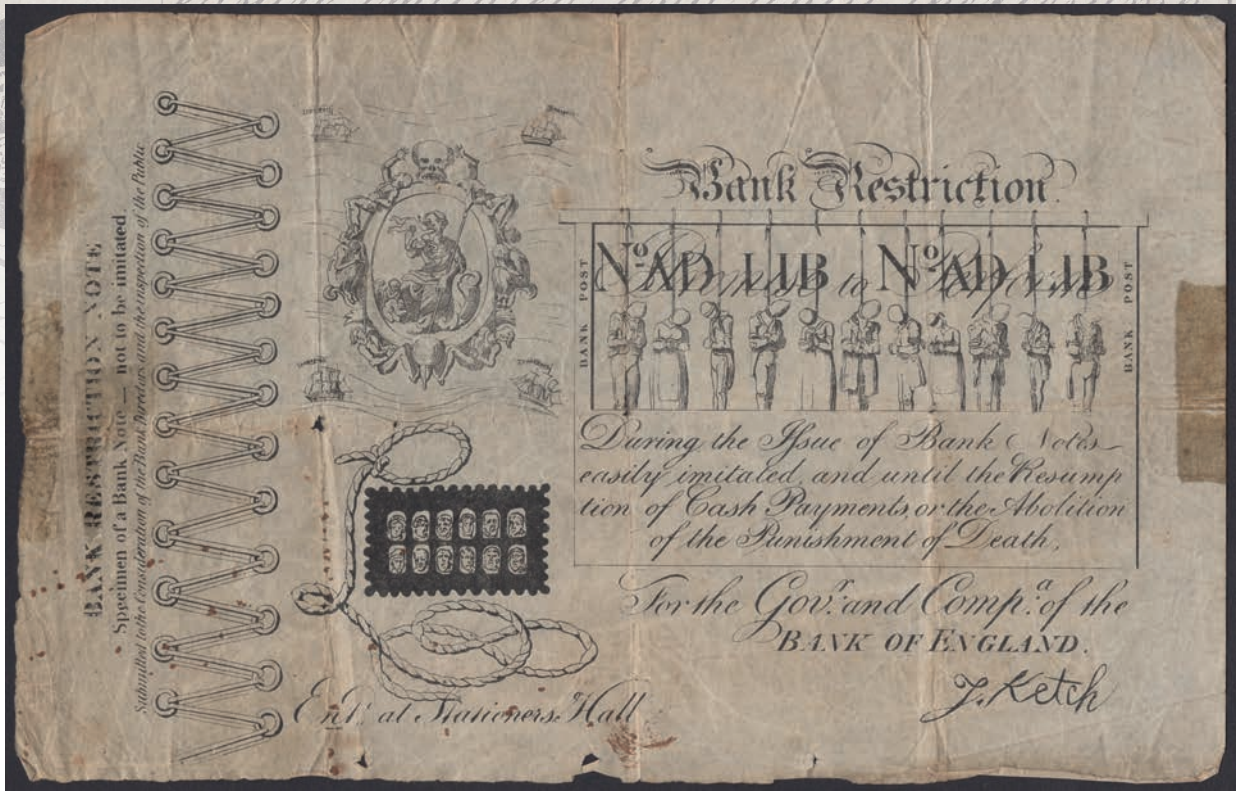 BANK RESTRICTION NOTE
Specimen of a Bank Note — not to be imitated
Submitted to the Consideration of the Bank Directors and the inspection of the Public
Bank Restriction.
BANK POST
Nº AD LIB Nº AD LIB
to Perform
BANK POST
During the Issue of Bank Notes
easily imitated, and until the Resump
tion of Cash Payments, or the Abolition
of the Punishment of Death,
For the Govr. and Compa. of the
BANK OF ENGLAND.
J. Ketch
Entd. at Stationers Hall